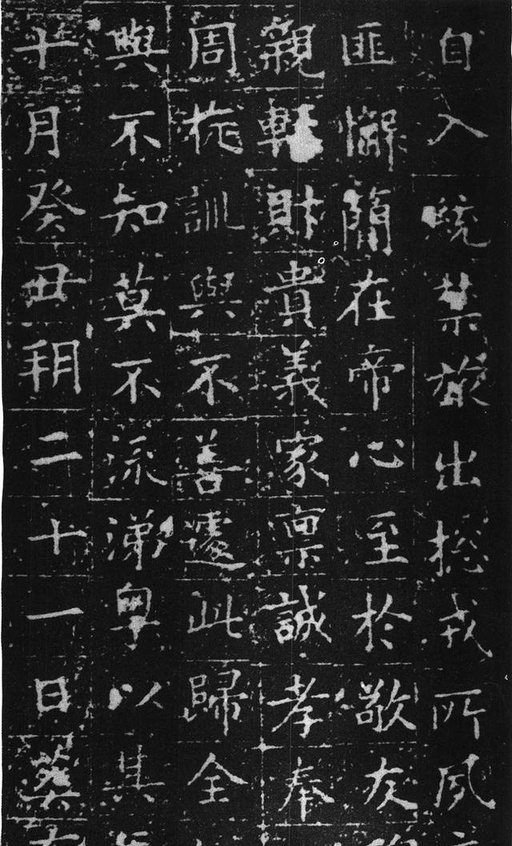 自入統禁旅出揔戎所夙
匪懈簡在帝心至於敬友
親輕財貴義家稟誠孝奉
周旋訓與不善遽此歸全
與不知莫不流涕粵以其
十月癸丑朔二十一日葵